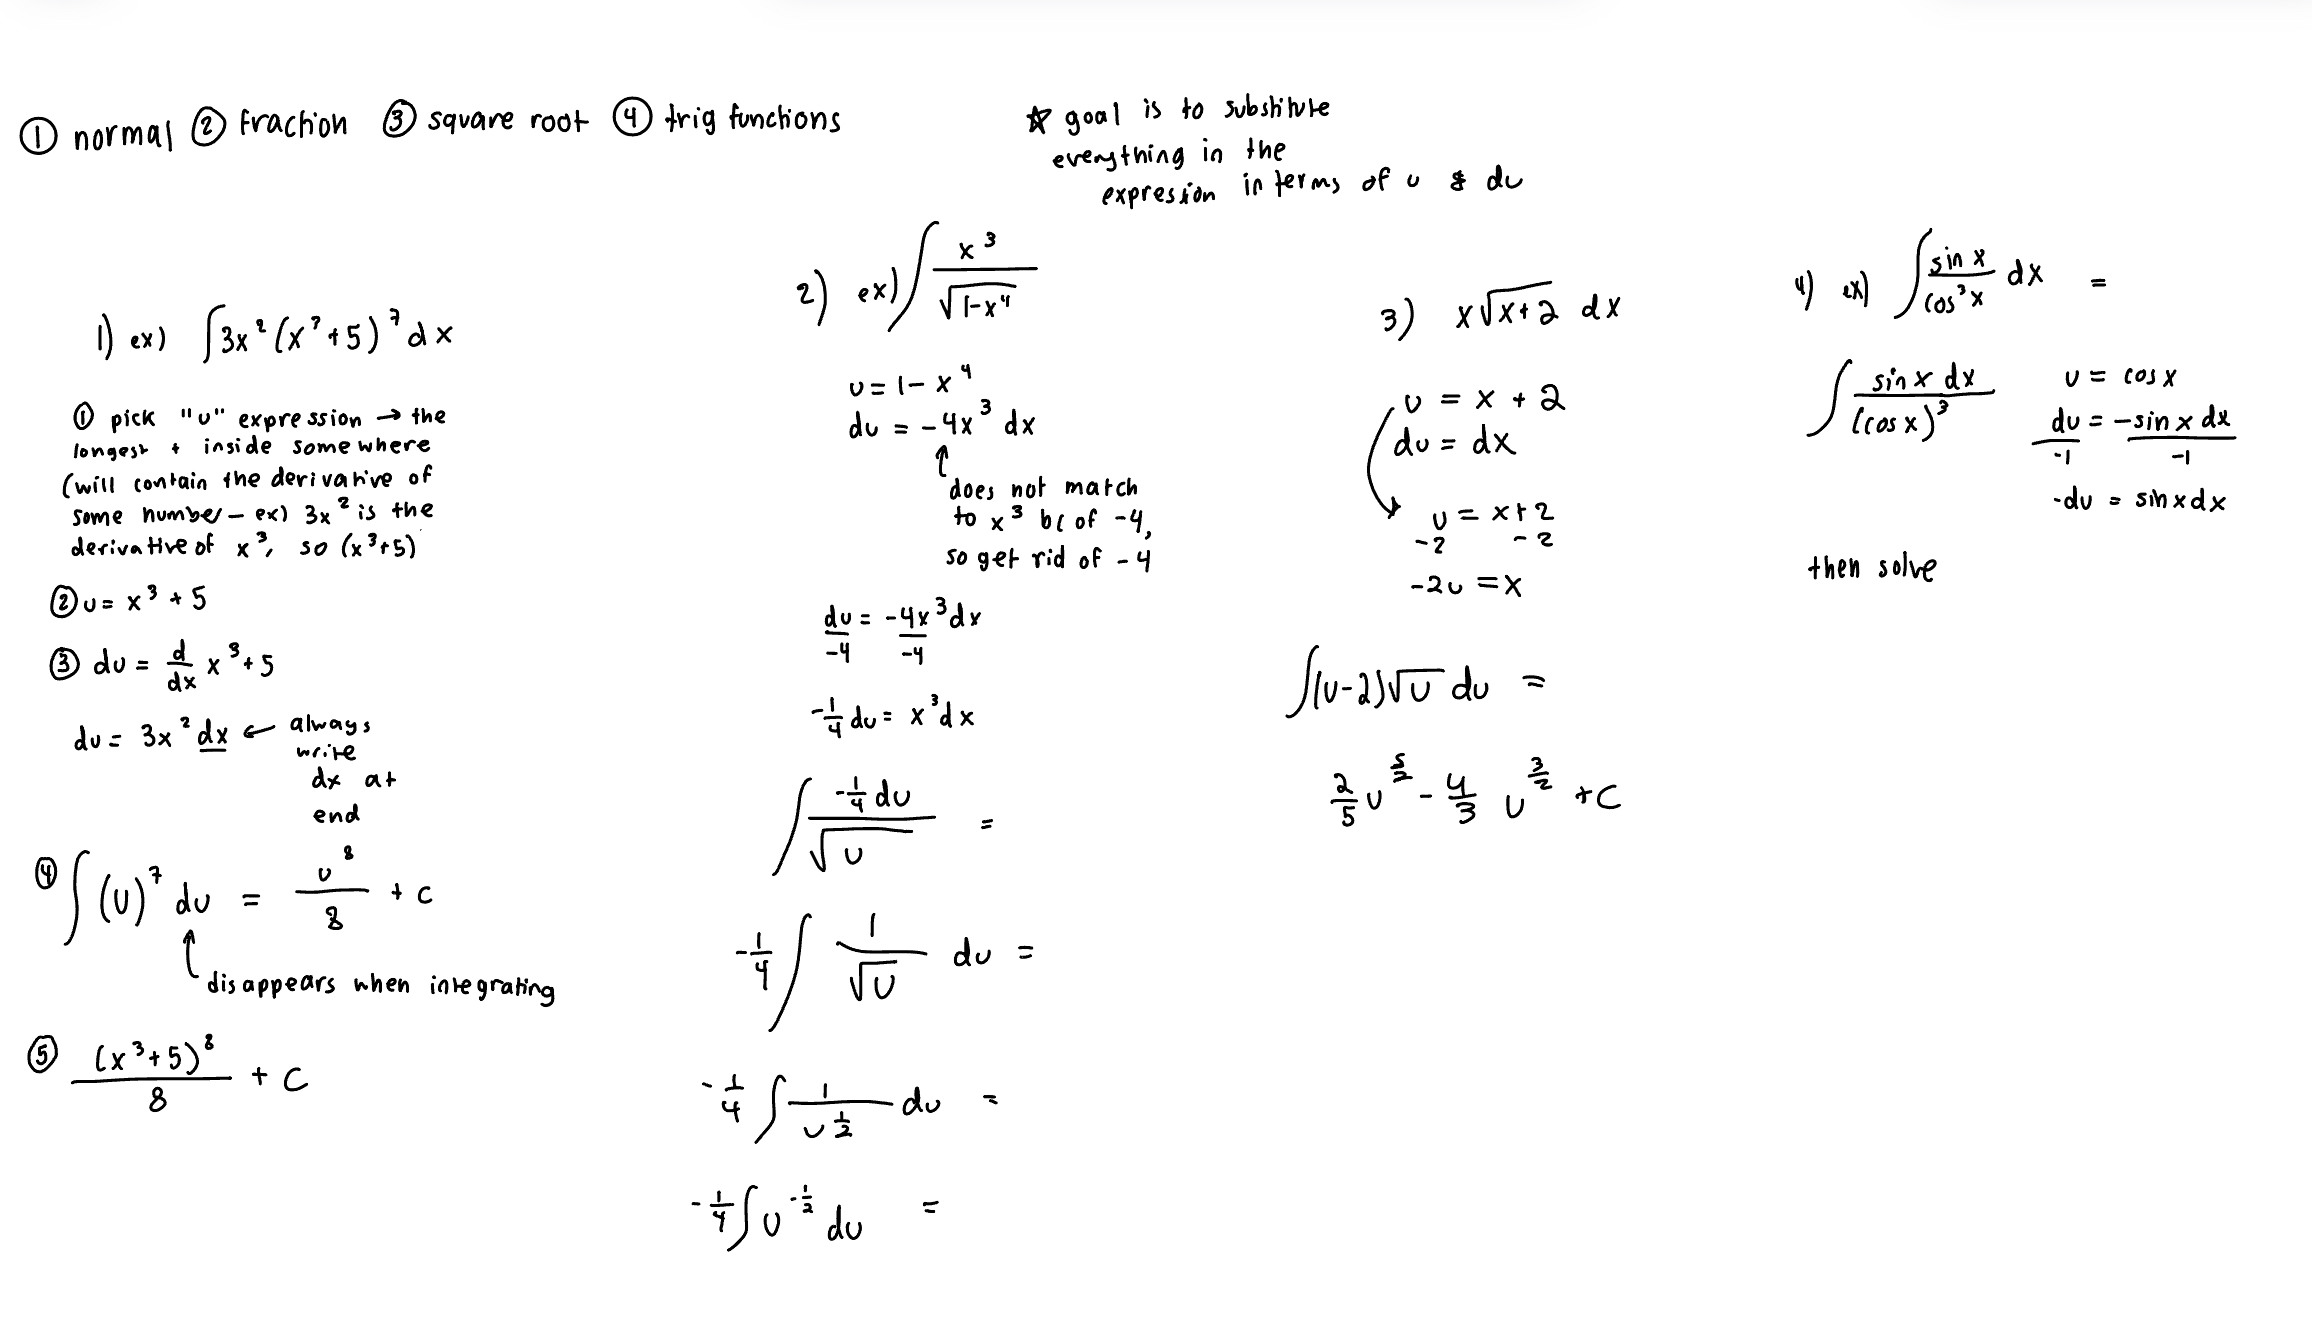 ① normal ② fraction ③ square root ④ trig functions
☆ goal is to substitute
everything in the
expresion in terms of u & du
1) ex) ∫3x²(x³+5)⁷dx
① pick "u" expression → the
longest + inside somewhere
(will contain the derivative of
some number - ex) 3x² is the
derivative of x³, so (x³+5)
② u = x³ + 5
③ du = d/dx x³+5
du = 3x² dx ← always
write
dx at
end
④ ∫(u)⁷ du = u⁸/8 + c
↑ disappears when integrating
⑤ (x³+5)⁸/8 + C
2) ex) ∫ x³/√(1-x⁴)
u = 1 - x⁴
du = -4x³ dx
↑
does not match
to x³ bc of -4,
so get rid of -4
du/-4 = -4x³dx/-4
-1/4 du = x³dx
∫ (-1/4 du)/√u =
-1/4 ∫ 1/√u du =
-1/4 ∫ 1/u^(1/2) du =
-1/4 ∫ u^(-1/2) du =
3) x√(x+2) dx
u = x + 2
du = dx
u = x+2
-2 -2
-2u = x
∫(u-2)√u du =
2/5 u^(5/2) - 4/3 u^(3/2) + C
4) ex) ∫ sin x/cos³x dx =
∫ sin x dx/(cos x)³
u = cos x
du/-1 = -sin x dx/-1
-du = sin x dx
then solve